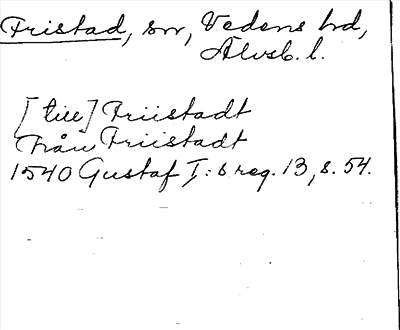 Fristad, sn, Vedens hd,
Älvsb. l.
[till] Friistadt
Från Friistadt
1540 Gustaf I:s reg. 13, s. 54.